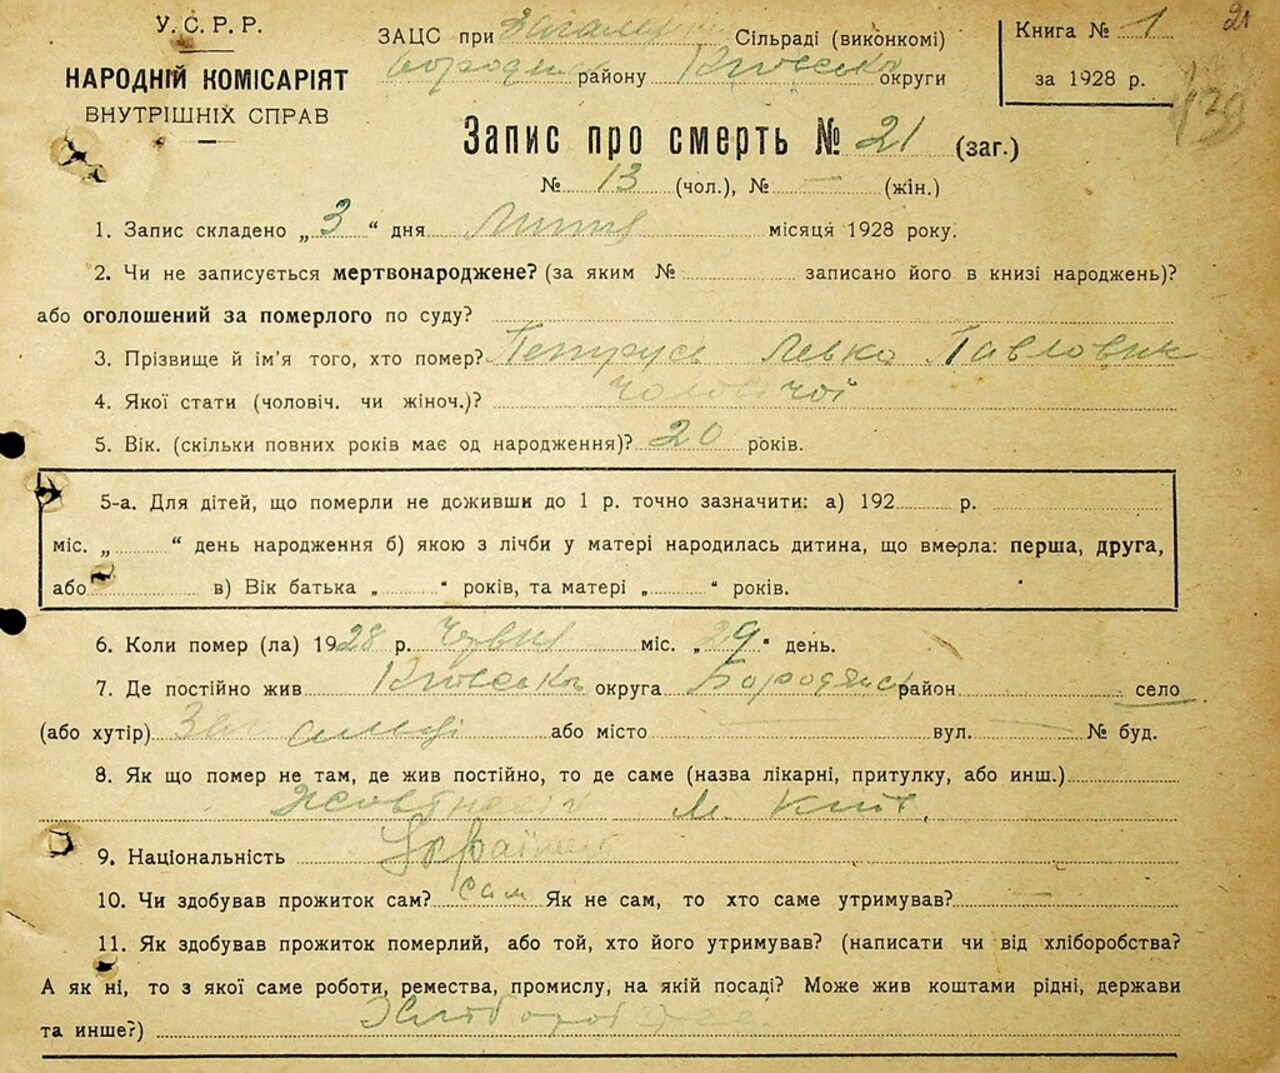 У. С. Р. Р.
НАРОДНІЙ КОМІСАРІЯТ
ВНУТРІШНІХ СПРАВ
ЗАЦС при Сільраді (виконкомі)
району Київська округи
Книга № 1
за 1928 р.
21
Запис про смерть № 21 (заг.)
№ 13 (чол.), № — (жін.)
1. Запис складено „3“ дня Липня місяця 1928 року.
2. Чи не записується мертвонароджене? (за яким № записано його в книзі народжень)?
або оголошений за померлого по суду?
3. Прізвище й ім'я того, хто помер? Петрусь Левко Павлович
4. Якої стати (чоловіч. чи жіноч.)? Чоловічої
5. Вік. (скільки повних років має од народження)? 20 років.
5-а. Для дітей, що померли не доживши до 1 р. точно зазначити: а) 192 р.
міс. „ “ день народження б) якою з лічби у матері народилась дитина, що вмерла: перша, друга,
або в) Вік батька „ “ років, та матері „ “ років.
6. Коли помер (ла) 1928 р. Червня міс. „29“ день.
7. Де постійно жив Київська округа Бородянськ район село
(або хутір) або місто — вул. — № буд.
8. Як що помер не там, де жив постійно, то де саме (назва лікарні, притулку, або инш.)
м. Київ.
9. Національність Українець
10. Чи здобував прожиток сам? сам Як не сам, то хто саме утримував? —
11. Як здобував прожиток померлий, або той, хто його утримував? (написати чи від хліборобства?
А як ні, то з якої саме роботи, ремества, промислу, на якій посаді? Може жив коштами рідні, держави
та инше?) З хліборобства.